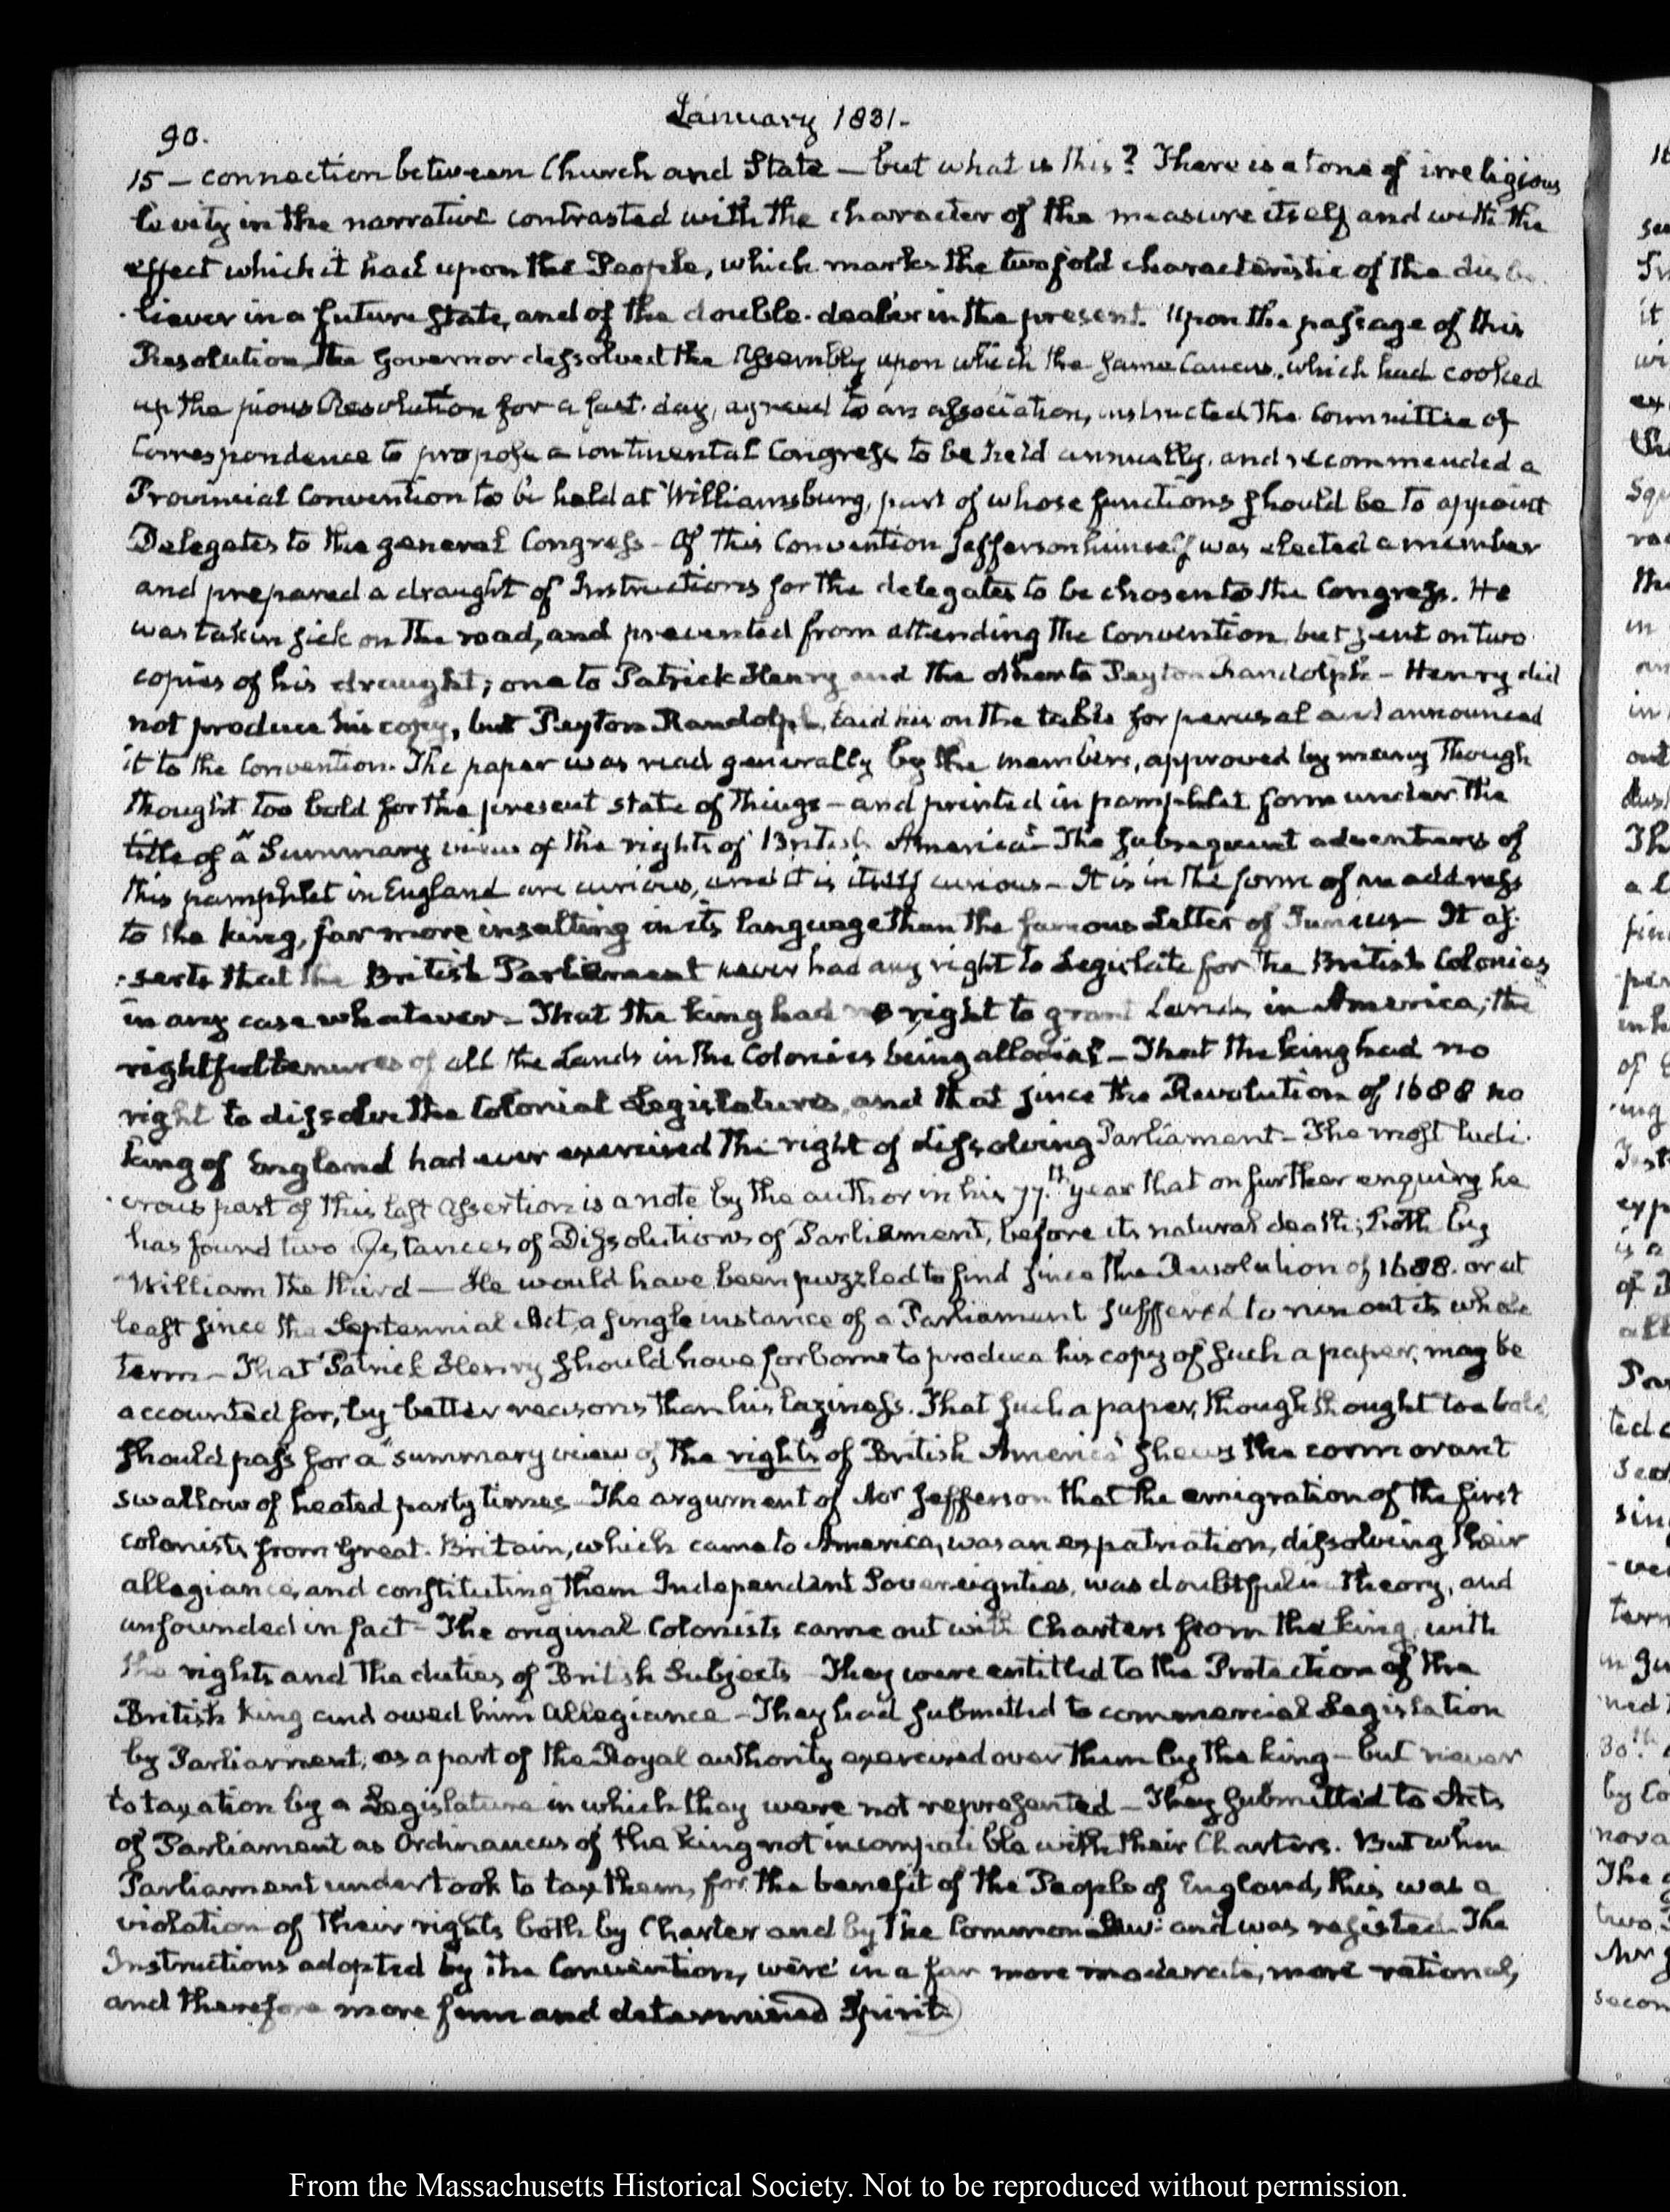 January 1831-
90.
15 - connection between Church and State — but what is this? There is a tone of irreligious
levity in the narrative contrasted with the character of the measure itself and with the
effect which it had upon the People, which marks the twofold characteristic of the disbe-
-liever in a future state, and of the double-dealer in the present. Upon the passage of this
Resolution, the Governor dissolved the Assembly upon which the same Caucus, which had cooked
up the pious Resolution for a fast-day, agreed to an association, instructed the Committee of
Correspondence to propose a continental Congress to be held annually, and recommended a
Provincial Convention to be held at Williamsburg, part of whose functions should be to appoint
Delegates to the general Congress - Of this Convention Jefferson himself was elected a member
and prepared a draught of Instructions for the delegates to be chosen to the Congress. He
was taken sick on the road, and prevented from attending the Convention but sent on two
copies of his draught; one to Patrick Henry and the other to Peyton Randolph - Henry did
not produce his copy, but Peyton Randolph laid his on the table for perusal and announced
it to the Convention. The paper was read generally by the members, approved by many though
thought too bold for the present state of things - and printed in pamphlet form under the
title of "a Summary view of the rights of British America" - The subsequent adventures of
this pamphlet in England are curious, and it is itself curious - It is in the form of an address
to the king, far more insulting in its language than the famous Letter of Junius - It as-
-serts that the British Parliament never had any right to Legislate for the British Colonies
in any case whatever - That the king had no right to grant Lands in America; the
rightful tenures of all the Lands in the Colonies being allodial - That the king had no
right to dissolve the Colonial Legislatures, and that since the Revolution of 1688 no
king of England had ever exercised the right of dissolving Parliament - The most ludi-
-crous part of this last assertion is a note by the author in his 77.th year that on further enquiry he
has found two Instances of Dissolutions of Parliament, before its natural death; both by
William the third — He would have been puzzled to find since the Revolution of 1688. or at
least since the Septennial Act, a single instance of a Parliament suffered to run out its whole
term - That Patrick Henry should have forborne to produce his copy of such a paper, may be
accounted for, by better reasons than his laziness. That such a paper, though thought too bold,
should pass for a "summary view of the rights of British America" shews the cormorant
swallow of heated party times - The argument of Mr Jefferson that the emigration of the first
colonists from Great-Britain, which came to America, was an expatriation, dissolving their
allegiance, and constituting them Independent Sovereignties, was doubtful in Theory, and
unfounded in fact - The original Colonists came out with Charters from the king, with
the rights and the duties of British Subjects - They were entitled to the Protection of the
British king and owed him allegiance - They had submitted to commercial Legislation
by Parliament, as a part of the Royal authority exercised over them by the king - but never
to taxation by a Legislature in which they were not represented - They submitted to Acts
of Parliament as Ordinances of the king not incompatible with their Charters. But when
Parliament undertook to tax them, for the benefit of the People of England, this was a
violation of their rights both by Charter and by the Common Law: and was resisted. The
Instructions adopted by the Convention, were in a far more moderate, more rational,
and therefore more firm and determined Spirit.
From the Massachusetts Historical Society. Not to be reproduced without permission.